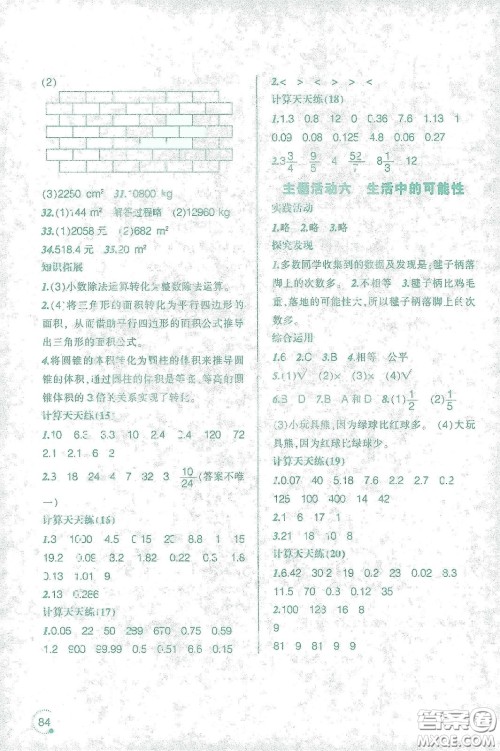 (2)
(3)2250 cm² 31.10800 kg
32.(1)144 m² 解答过程略 (2)12960 kg
33.(1)2058 元 (2)682 m²
34.518.4 元 35.20 m²
知识拓展
1.(3)小数除法运算转化为整数除法运算。
2.(4)将三角形的面积转化为平行四边形的
面积，从而借助平行四边形的面积公式推导
出三角形的面积公式。
4.将圆锥的体积转化为圆柱的体积来推导圆
锥的体积，通过圆柱的体积是等底、等高的圆
锥体积的3倍的关系实现了转化。
计算天天练(15)
1.10 6.3 3.8 2.4 0.4 120 72
2.1
2.3 18 24 4 7 32 3 10/24 (答案不唯
一)
计算天天练(16)
1.3 1000 4.5 0.15 23 8.8 1 15
19.2 0.09 0.38 1.22 1.82 0.3 1.58
0.13 1.01 9
3.13 0.286
计算天天练(17)
1.0.05 22 50 289 570 0.3 0.65
1.2 900 99.99 0.5 0.51 21 0.19
2.< < > > > <
计算天天练(18)
1.1.3 0.8 12 0 0.36 7.6 1.13 1
0.09 0.08 0.125 4.8 0.65 0.0027
2.3 3/4 9/5 4 52/9 8 1/3 12
主题活动六 生活中的可能性
实践活动
1.略 2.略
探究发现
1.多数同学收集到的数据及发现是：毽子柄落
脚上的次数多。 2.不相等 3.毽子柄比鸡毛
重，落地的可能性大，所以我发现毽子柄落脚上的次
数多。
综合运用
1.6 2.C 3.B 4.相等 公平
5.(1)√ (2)× (3)× (4)√
6.B D 7.B A和D 8.(1)1/2 (2)1/5
(3)小玩具熊，因为绿球比红球多。 (4)大玩
具熊，因为红球比绿球少。
计算天天练(19)
1.0.07 40 5.18 7.8 7.2 23 0.12
125 100 400 14 40
2.1 6 17
3.21 18 10 8
计算天天练(20)
1.6.42 30 2.2 19 0.32 6.5 20
23 0.35
2.100 128 81 3 34 34 9
9
81 9 91 9 9
84
答案圈
MXQE.COM